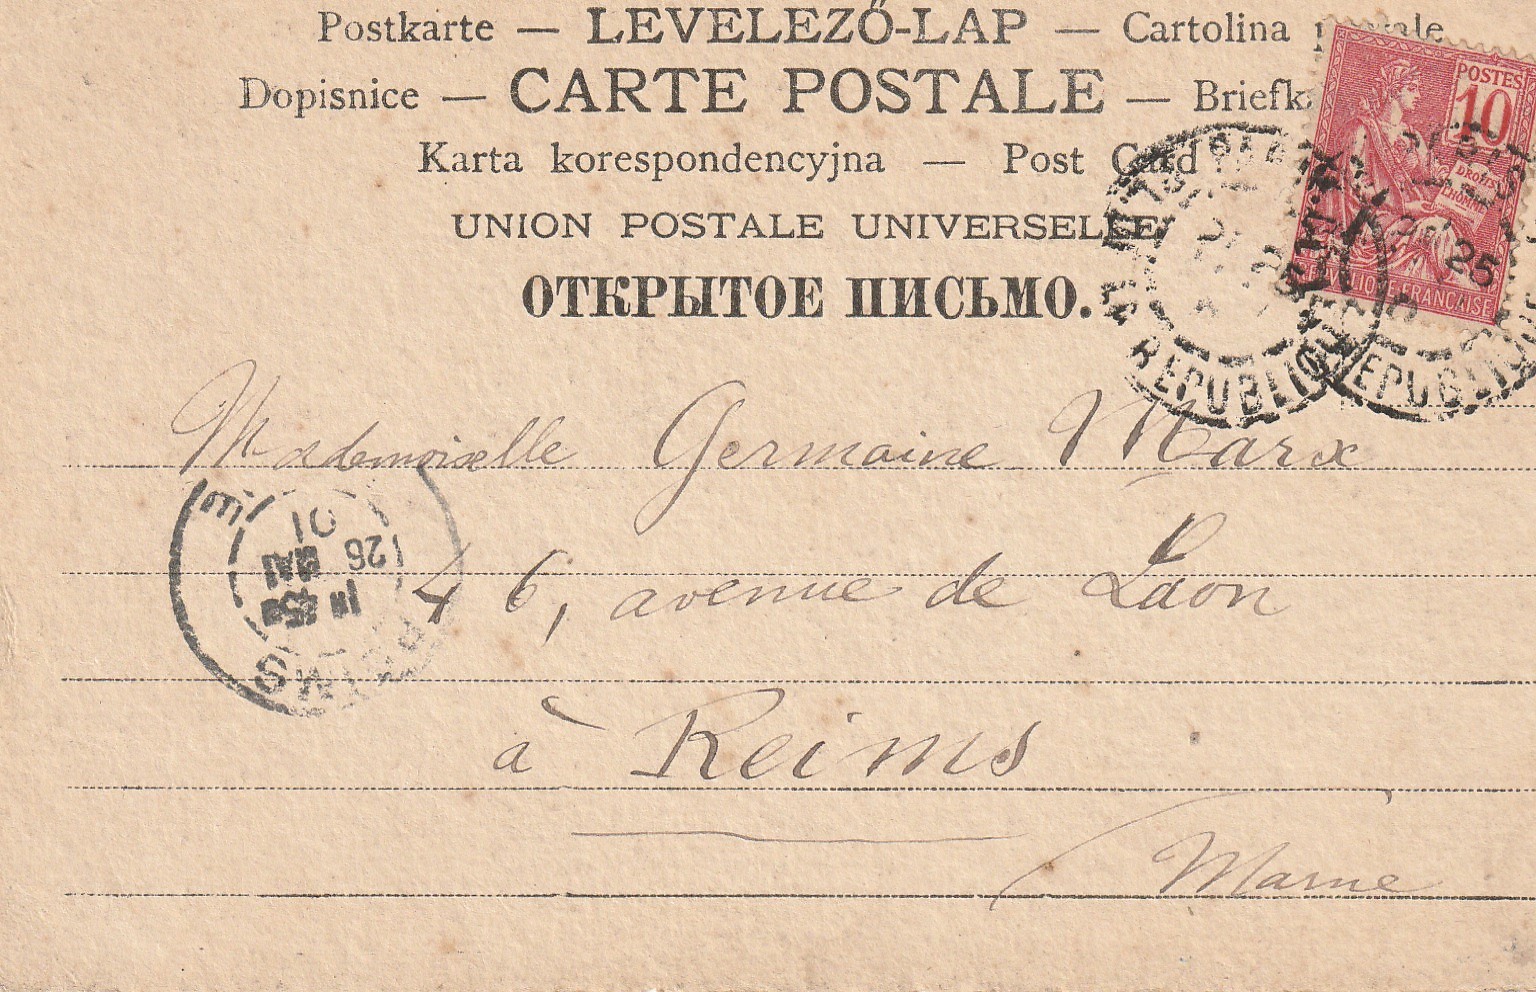 Postkarte — LEVELEZŐ-LAP — Cartolina postale
Dopisnice — CARTE POSTALE —
Karta korespondencyjna — Post Card
UNION POSTALE UNIVERSELLE
ОТКРЫТОЕ ПИСЬМО.
POSTES
10
DROITS
L'HOMME
REPUBLIQUE FRANÇAISE
25
REPUBLIQUE
REPUBLIQUE
Mademoiselle Germaine Marx
46, avenue de Laon
à Reims
Marne
REIMS
26
MAI
01